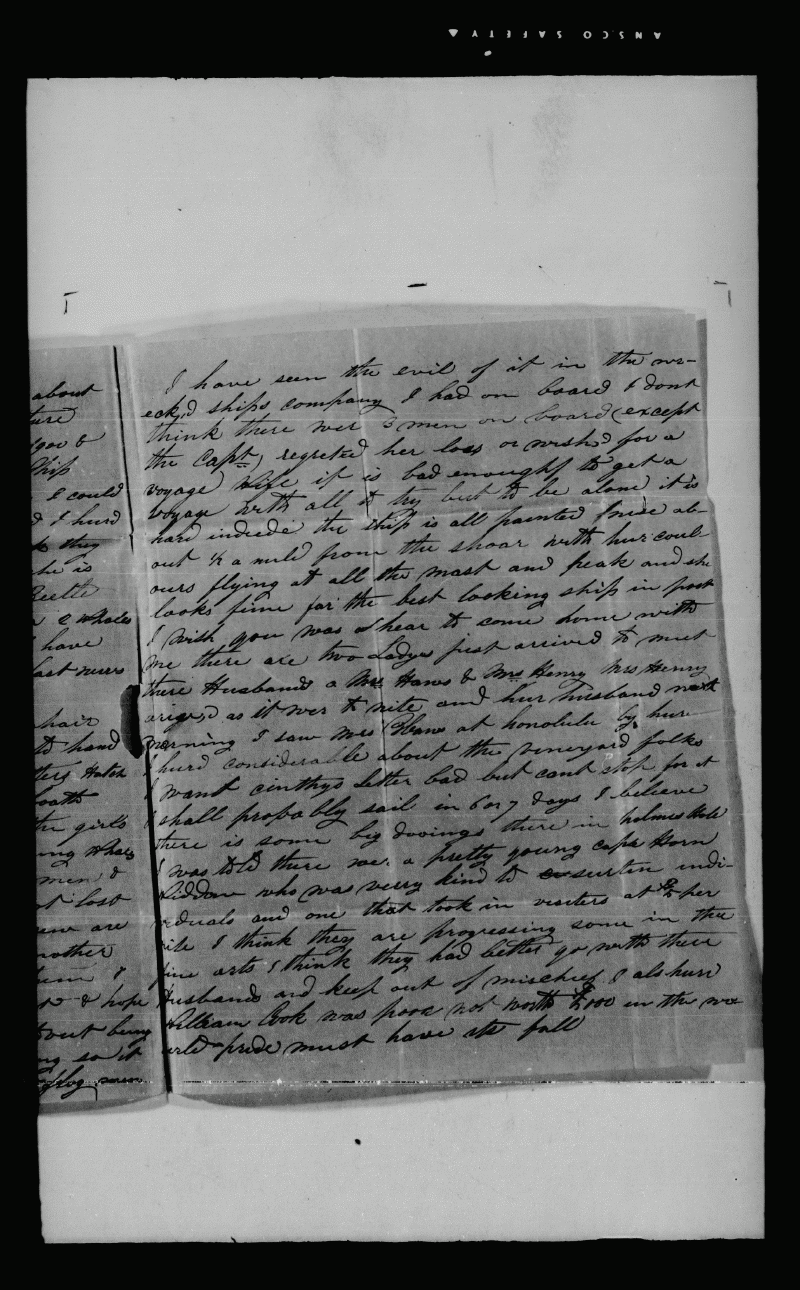 ANSCO SAFETY
about
ture
Ship
I could
& I hurd
they
she is
Beetle
2 whales
have
last news
hair
to hand
Hatch
loath
the girls
men &
lost
are
nother
& hope
about being
so it
men
I have seen the evil of it in the wr-
ecked ships company I had on board I dont
think there wer 3 men on board (except
the Capt) regreted her loss or wished for a
voyage Wife it is bad enought to get a
voyage with all to try but to be alone it is
hard indeede the ship is all painted inside ab-
out ½ a mild from the shoar with hur coul-
ours flying at all the mast and peak and she
looks fine far the best looking ship in port
I wish you was hear to come home with
me there are two Ladys just arrived to meet
there Husbands a Mrs Haws & Mrs Henry Mrs Henry
arived as it wer to nite and hur husband next
morning I saw Mrs at honolulu by hur
I hurd considerable about the vineyard folks
I want cinthys Letter bad but cant stop for it
I shall probably sail in 6 or 7 days I believe
there is some big dooings there in holmes Hole
I was told there wer a pretty young cape Horn
Widdow who was verry kind to surten indi-
viduals and one that took in visiters at per
I think they are progressing some in the
fine arts I think they had better go with there
Husbands and keep out of mischief I also hurd
William Cook was poor not worth in the wo
urld pride must have its fall